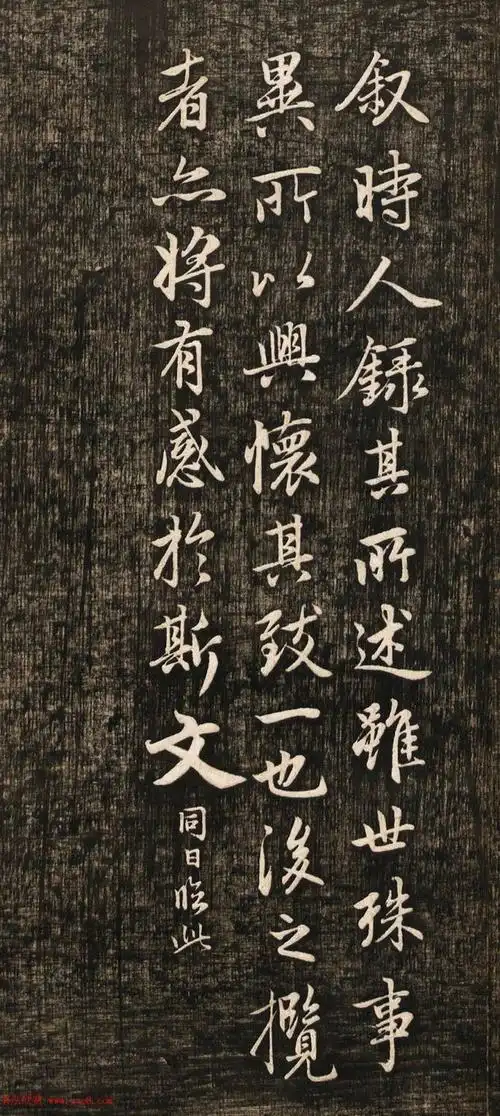 叙時人録其所述雖世殊事
異所以興懷其致一也後之攬
者亦將有感於斯文
同日臨此